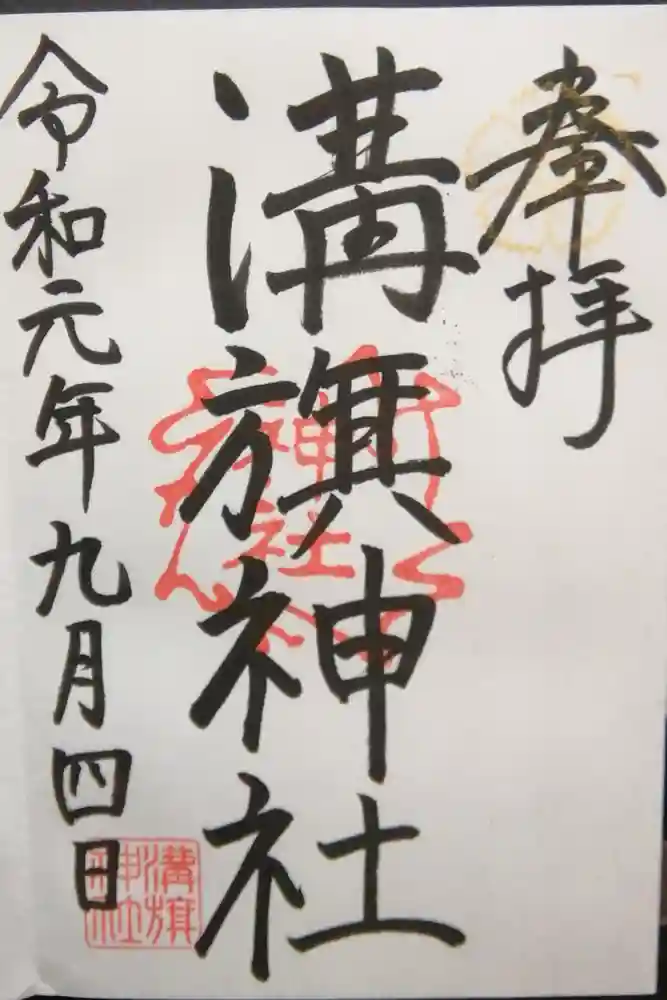 奉拝
溝旗神社
令和元年九月四日
神社
溝旗
神社